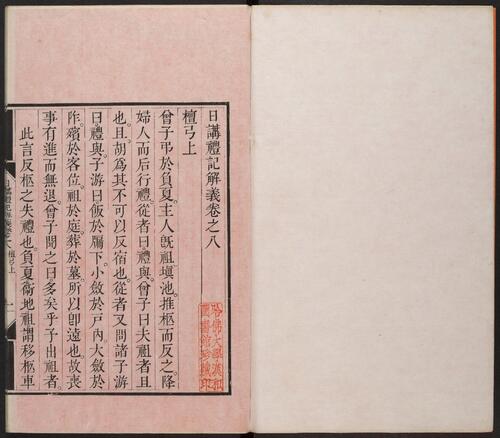 日講禮記解義卷之八
檀弓上
曾子弔於負夏。主人旣祖塡池。推柩而反之。降
婦人而后行禮。從者曰禮與。曾子曰夫祖者且
也。且。胡爲其不可以反宿也。從者又問諸子游
曰。禮與。子游曰。飯於牖下。小斂於戶內。大斂於
阼。殯於客位。祖於庭。葬於墓。所以卽遠也。故喪
事有進而無退。曾子聞之曰。多矣乎。予出祖者。
此言反柩之失禮也。負夏衞地。祖謂移柩車
日講禮記解義卷之八 檀弓上
一
哈佛大學漢和
圖書館珍藏印